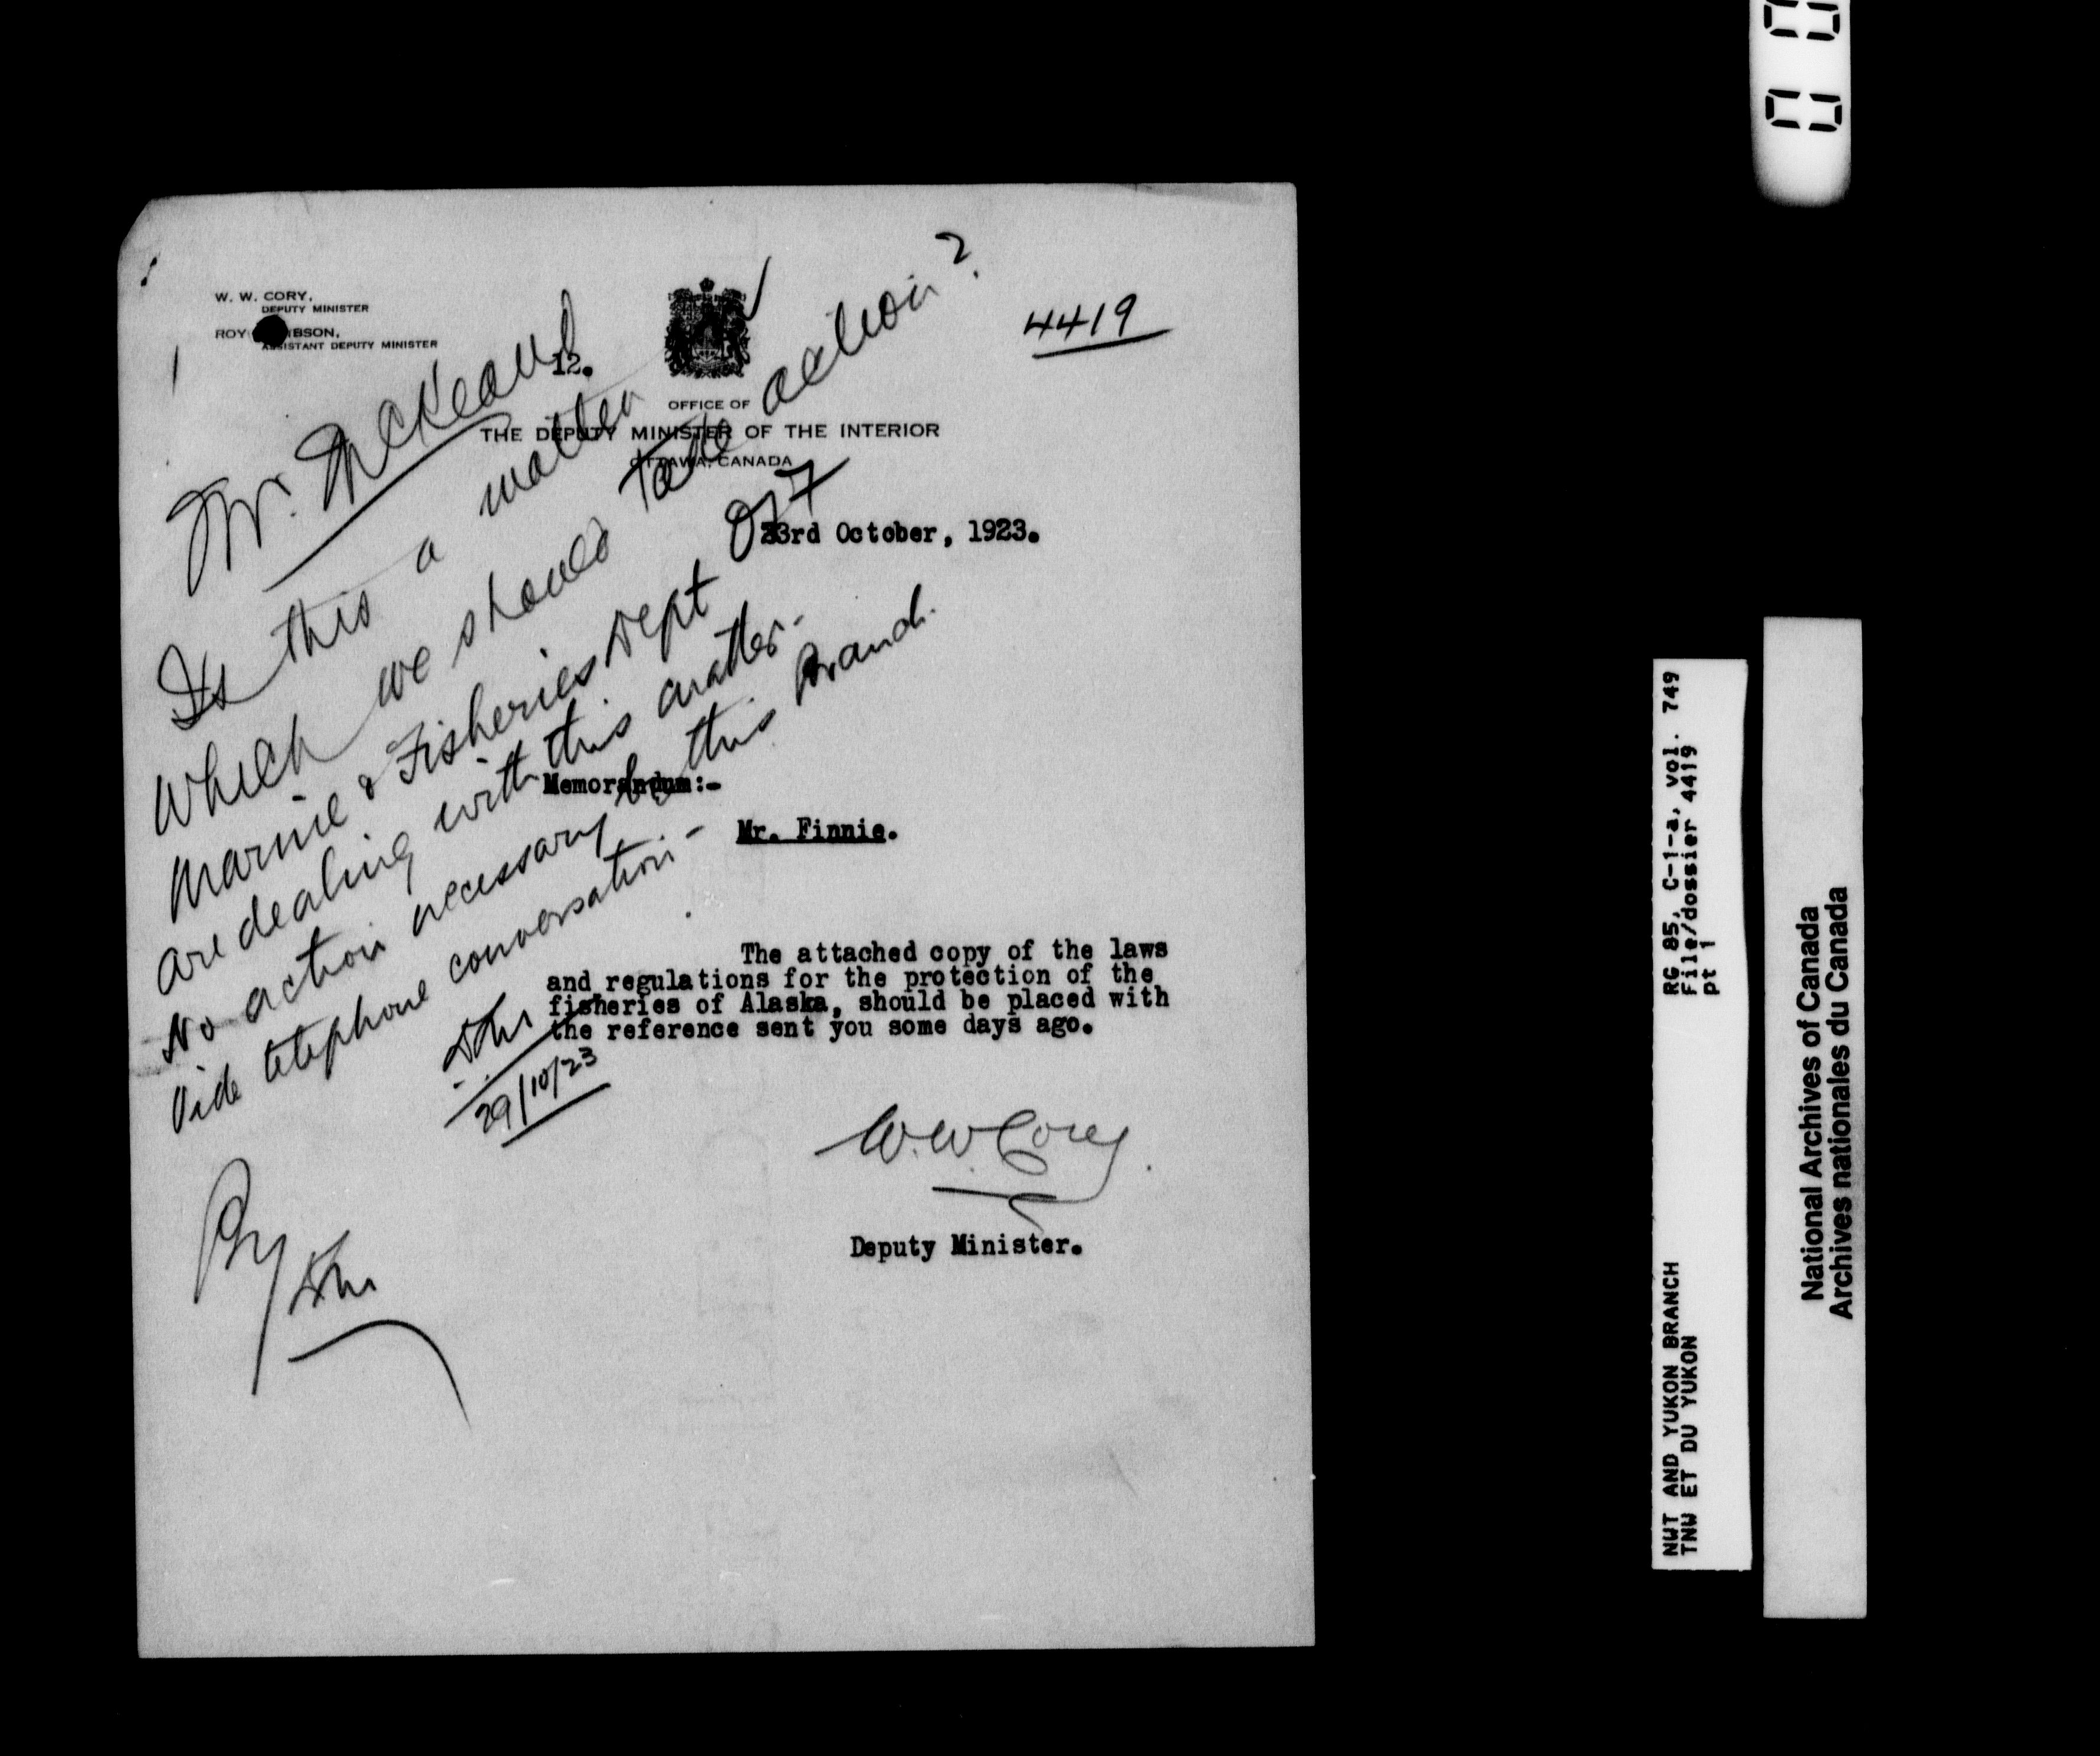 W. W. CORY,
DEPUTY MINISTER
ROY IBSON,
ASSISTANT DEPUTY MINISTER
12.
4419
OFFICE OF
THE DEPUTY MINISTER OF THE INTERIOR
OTTAWA, CANADA
23rd October, 1923.
Mr. McKeand
Is this a matter
which we should take action?
Marine & Fisheries Dept
are dealing with this matter-
No action necessary by this Branch.
Vide telephone conversation-
29/10/23
Memorandum:-
Mr. Finnie.
The attached copy of the laws
and regulations for the protection of the
fisheries of Alaska, should be placed with
the reference sent you some days ago.
W.W. Cory
Deputy Minister.
RG 85, C-1-a, vol. 749
File/dossier 4419
pt 1
NWT AND YUKON BRANCH
TNW ET DU YUKON
National Archives of Canada
Archives nationales du Canada